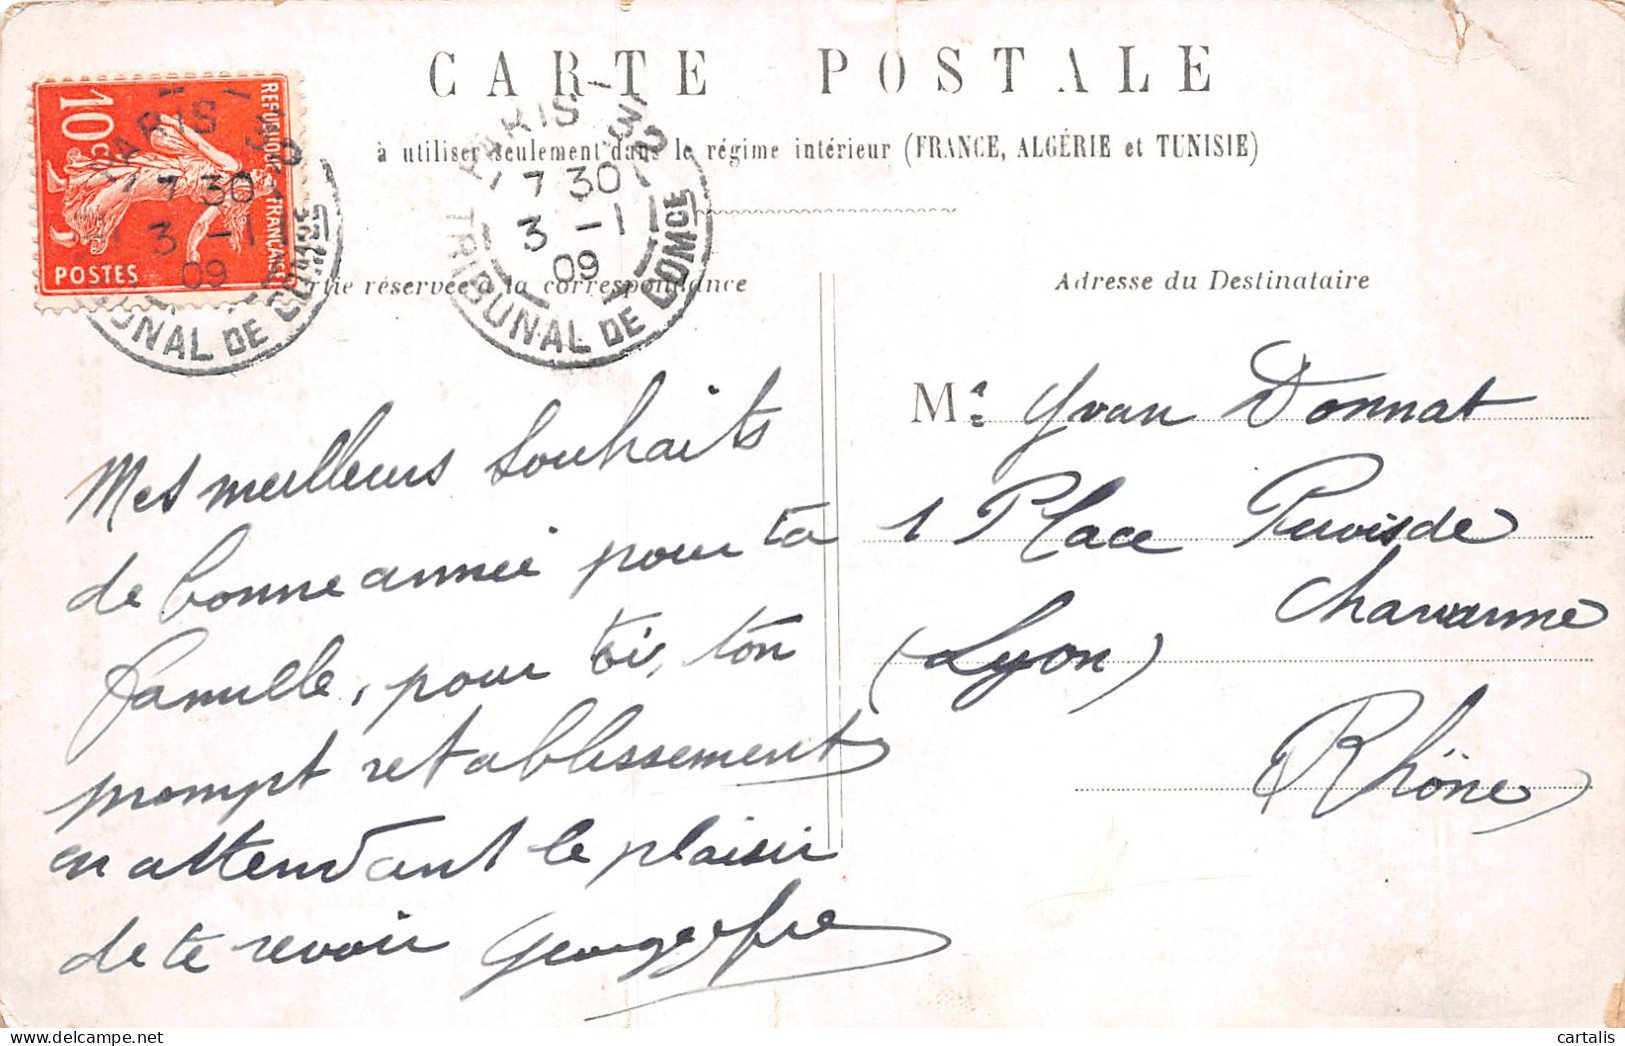 CARTE POSTALE
à utiliser seulement dans le régime intérieur (FRANCE, ALGÉRIE et TUNISIE)
REPUBLIQUE FRANÇAISE
10c
POSTES
PARIS - 32
7 30
3 -1
09
TRIBUNAL DE COMCE
PARIS - 32
7 30
3 -1
09
TRIBUNAL DE COMCE
Partie réservée à la correspondance
Adresse du Destinataire
Mes meilleurs souhaits
de bonne année pour ta
famille, pour toi, ton
prompt retablissement
en attendant le plaisir
de te revoir
Mr Yvan Donnat
1 Place Puvis de
Chavanne
(Lyon)
Rhône
cartalis